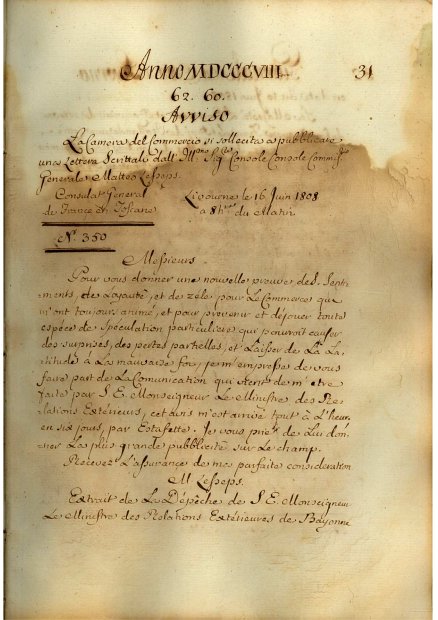 Anno MDCCCVIII. 31
62. 60.
Avviso
La Camera del Commercio si sollecita a pubblicare
una Lettera Scrittale dall' Ill.mo Sig.r Console
Generale Matteo Lesseps.
Consulat General
de France en Toscane
Livourne le 16 Juin 1808
a 8 h.res du Matin
N.o 350
Messieurs
Pour vous donner une nouvelle preuve des Senti-
ments, de Loyauté, et de zèle pour Le Commerce qui
m'ont toujours animé, et pour prevenir et dejouer toute
espèce de Speculation particuliere qui pourroit causer
des surprises, des pertes partielles, et Laisser de La La-
titude à La mauvaise foy, je m'empresse de vous
faire part de La Comunication qui vient de m'etre
faite par S. E. Monseigneur Le Ministre des Re-
lations Extérieurs, et qui m'est arrivé tout à L'heure
en six jours par Estafette. Je vous prie de Lui don-
ner La plus grande pubblicité sur Le champ.
Recevez L'assurance de ma parfaite consideration
M Lesseps.
Extrait de La Dépêche de S. E. Monseigneur
Le Ministre des Relations Extérieures de Bayonne